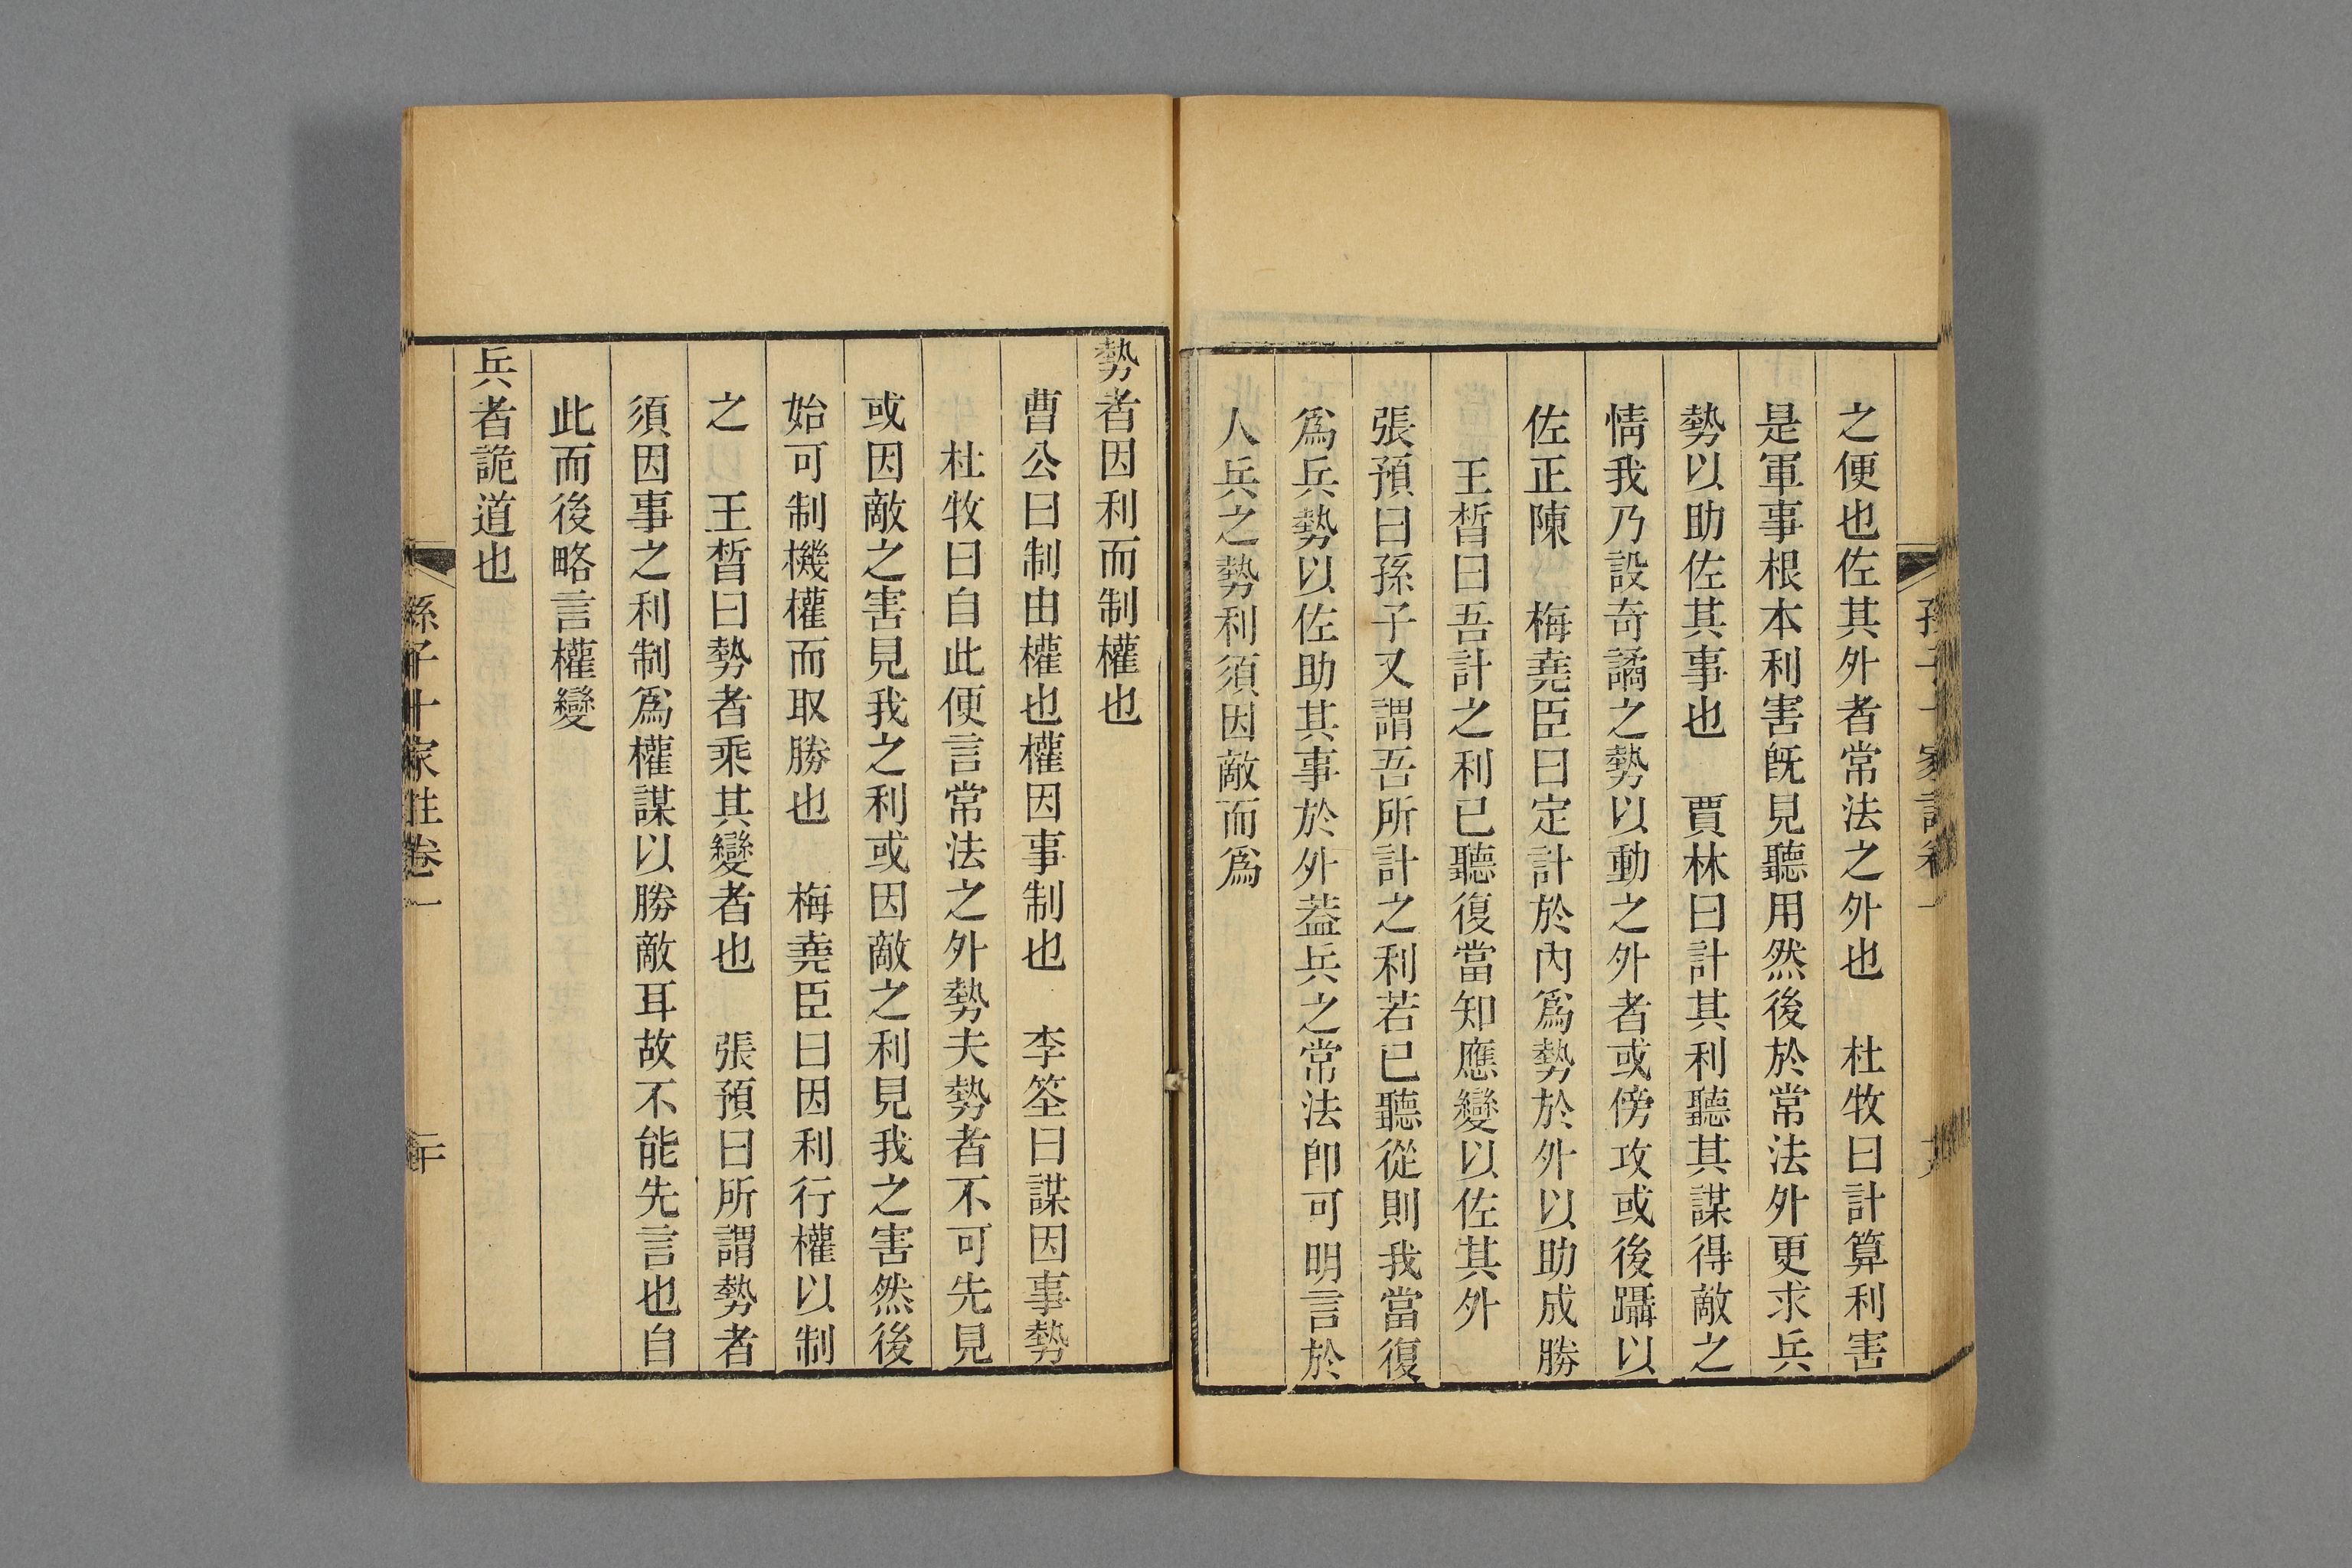 之便也佐其外者常法之外也　杜牧曰計算利害
是軍事根本利害旣見聽用然後於常法外更求兵
勢以助佐其事也　賈林曰計其利聽其謀得敵之
情我乃設奇譎之勢以動之外者或傍攻或後躡以
佐正陳　梅堯臣曰定計於內爲勢於外以助成勝
王晳曰吾計之利已聽復當知應變以佐其外
張預曰孫子又謂吾所計之利若已聽從則我當復
爲兵勢以佐助其事於外葢兵之常法卽可明言於
人兵之勢利須因敵而爲
勢者因利而制權也
曹公曰制由權也權因事制也　李筌曰謀因事勢
杜牧曰自此便言常法之外勢夫勢者不可先見
或因敵之害見我之利或因敵之利見我之害然後
始可制機權而取勝也　梅堯臣曰因利行權以制
之　王晳曰勢者乘其變者也　張預曰所謂勢者
須因事之利制爲權謀以勝敵耳故不能先言也自
此而後略言權變
兵者詭道也
孫子十家註卷一